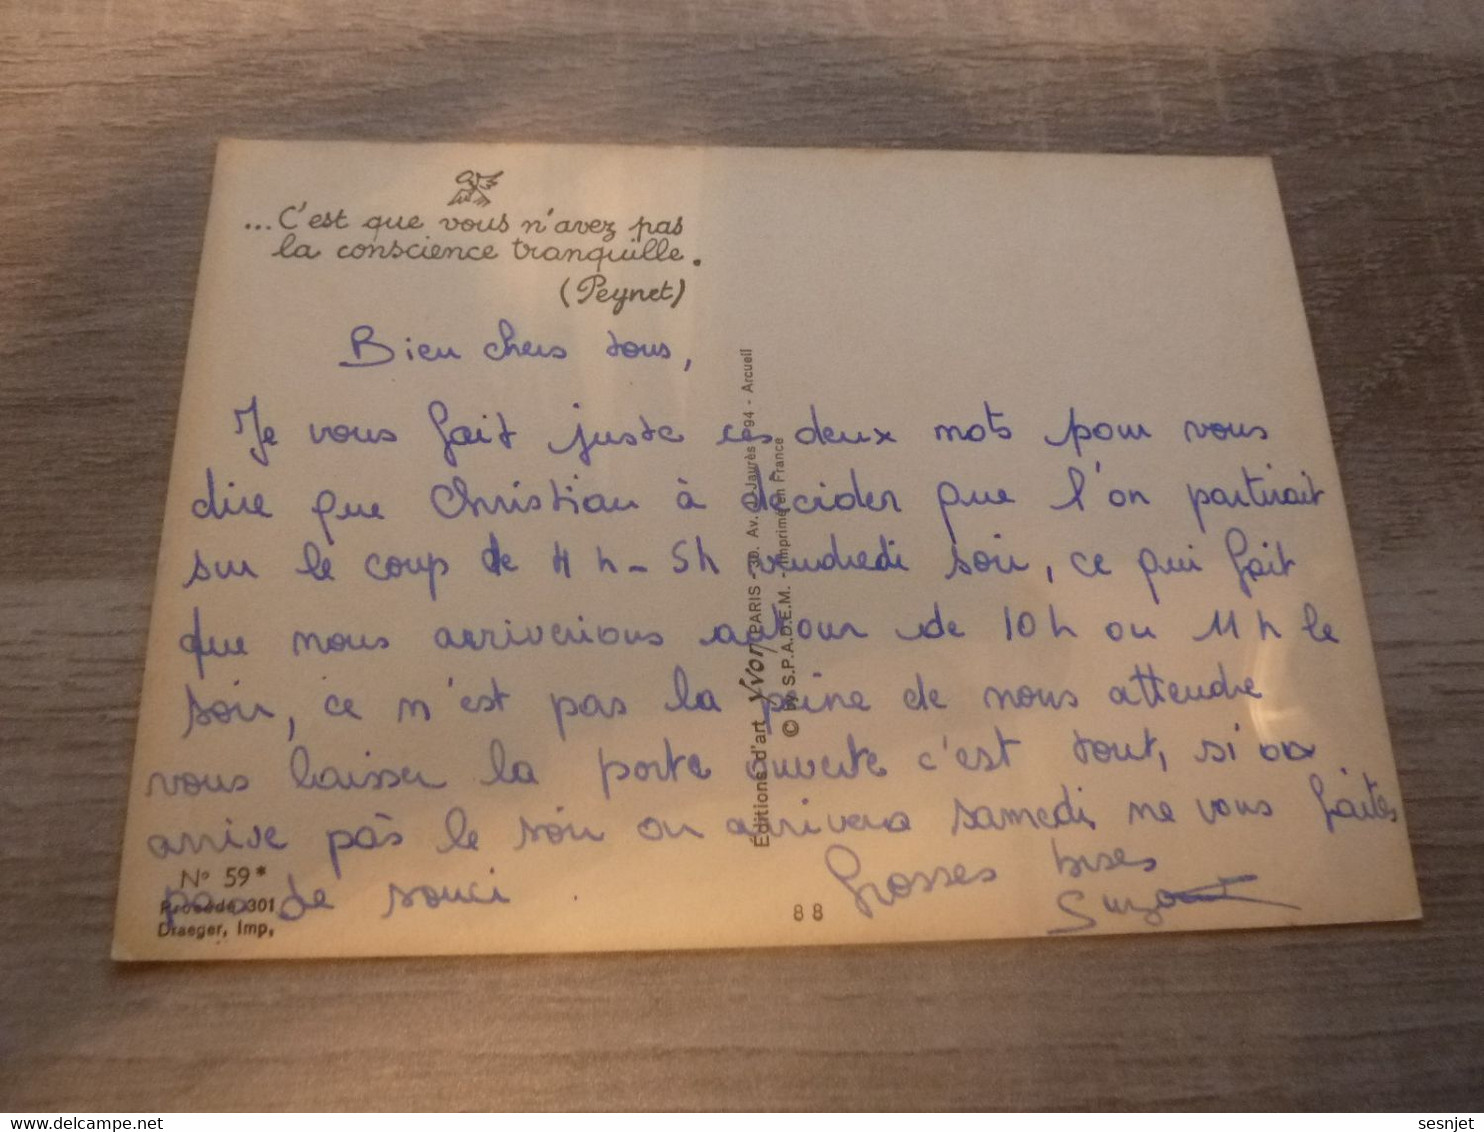 ...C'est que vous n'avez pas
la conscience tranquille.
(Peynet)
Bien chers tous,
Je vous fait juste ces deux mots pour vous
dire que Christian à décider que l'on partirait
sur le coup de 4 h - 5h vendredi soir, ce qui fait
que nous arriverions autour de 10 h ou 11 h le
soir, ce n'est pas la peine de nous attendre
vous laisser la porte ouverte c'est tout, si on
arrive pas le soir on arrivera samedi, ne vous faites
pas de souci.
Grosses bises
Éditions d'art Yvon, PARIS - 30, Av. J. Jaurès - 94 - Arcueil
© by S.P.A.D.E.M. - Imprimé en France
N° 59*
Procédé 301
Draeger, Imp,
88
sesnjet